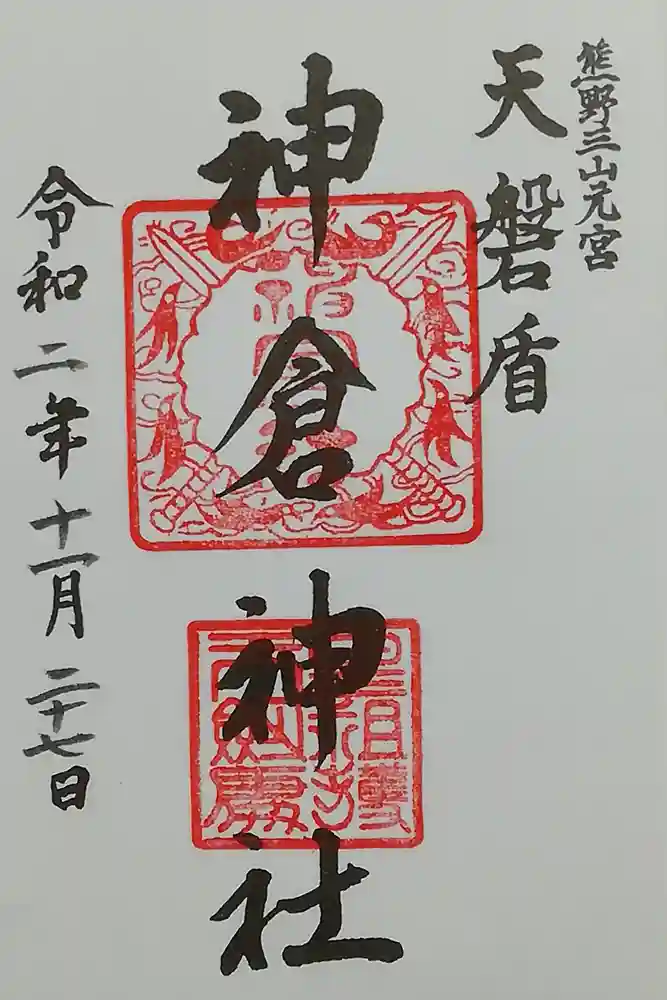 熊野三山元宮
天磐盾
神倉神社
令和二年十一月二十七日